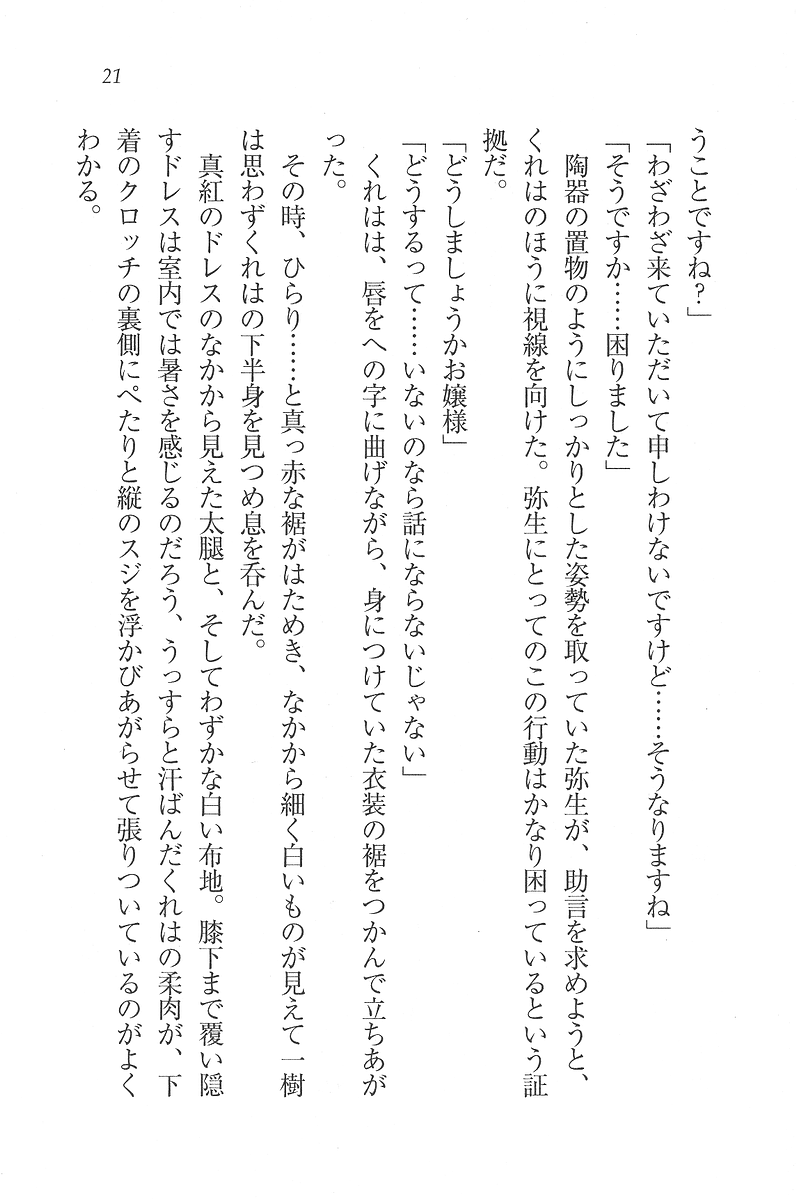 21
うことですね？」
「わざわざ来ていただいて申しわけないですけど……そうなりますね」
「そうですか……困りました」
　陶器の置物のようにしっかりとした姿勢を取っていた弥生が、助言を求めようと、
くれはのほうに視線を向けた。弥生にとってのこの行動はかなり困っているという証
拠だ。
「どうしましょうかお嬢様」
「どうするって……いないのなら話にならないじゃない」
　くれはは、唇をへの字に曲げながら、身につけていた衣装の裾をつかんで立ちあが
った。
　その時、ひらり……と真っ赤な裾がはためき、なかから細く白いものが見えて一樹
は思わずくれはの下半身を見つめ息を呑んだ。
　真紅のドレスのなかから見えた太腿と、そしてわずかな白い布地。膝下まで覆い隠
すドレスは室内では暑さを感じるのだろう、うっすらと汗ばんだくれはの柔肉が、下
着のクロッチの裏側にぺたりと縦のスジを浮かびあがらせて張りついているのがよく
わかる。